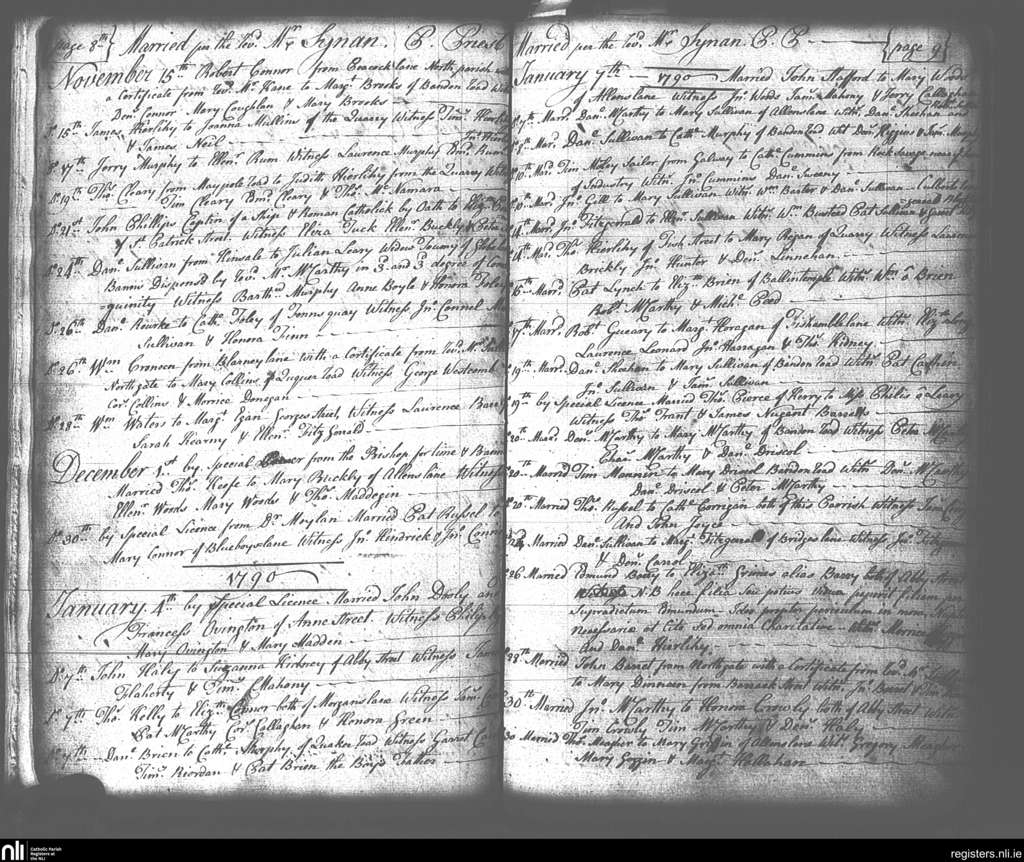 page 8th
Married per the Revd. Mr. Synan. P. Priest
November 15th Robert Connor from Peacock lane North parish
a Certificate from Revd. Mr. Kane to Margt. Brooks of Bandon road
Den: Connor Mary Coughlan & Mary Brooks
Do. 15th James Hierlihy to Joanna Mullins of the Quarry Witness Timy. Hierlihy
& James Neil
Do. 17th Jerry Murphy to Ellenr. Rum Witness Laurence Murphy Edmd. Rum
Do. 19th Thos. Cleary from Maypole road to Judith Hierlihy from the Quarry
Tim Cleary Edmd. Cleary & Thos. McNamara
Do. 21st John Phillips Captin of a Ship & Roman Catholick by Oath to
of St. Patrick Street. Witness Eliza Tuck Ellenr. Buckly & Peter
Do. 24th Danl. Sullivan from Kinsale to Julian Leary Widow Twomy of
Banns Dispens'd by Revd. Mr. McCarthy in 3 and 3 degree of
=guinity Witness Barthw. Murphy Anne Boyle & Honora Foley
Do. 26th Danl. Rourke to Cathe. Foley of Tomns quay Witness Jno. Connel
Sullivan & Honora Finn
Do. 26th Wm Croneen from Blarney lane with a Certificate from Revd. Mr.
North gate to Mary Collins of Quaquer road Witness George Westcomb
Cors. Collins & Morrice Donegan
Do. 28th Wm Waters to Margt. Egan Georges Street, Witness Laurence
Sarah Kearny & Ellenr. Fitz Gerald
December 1st by Special from the Bishop for time & Banns
Married Thos. Keefe to Mary Buckly of Allens lane Witness
Ellenr. Woods Mary Woods & Thos. Maddegin
Do. 30th by Special Licence from Dr. Moylan Married Pat Russel to
Mary Connor of Blueboys lane Witness Jno. Hendrick & Jno. Connor
1790
January. 4th by Special Licence Married John Dooly and
Francess Ovington of Anne Street. Witness Philip
Mary Ovington & Mary Madden
Do. 7th John Haly to Suzanna Kirkney of Abby Street Witness
Flaherty & Timy. Mahony
Do. 9th Thos. Kelly to Elizth. Connor both of Morgans lane Witness Saml.
Pat McCarthy Cors. Callaghan & Honora Green
Do. 9th Danl. Brien to Cathe. Murphy of Quaker road Witness Garret
Timy. Riordan & Pat Brien the Boy's Father
Married per the Revd. Mr. Synan P. P.
page 9
January 7th 1790 Married John Stafford to Mary Woods
of Allens lane Witness Jno. Woods Saml. Mahony & Jerry Callaghan
Do. 9th Marrd. Danl. McCarthy to Mary Sullivan of Allens lane Witns. Danl. Sheehan
Marrd. Danl. Sullivan to Cathe. Murphy of Bandon road Wit Den: Higgins &
Do. 10th Mard. Tim Motly Sailor from Galway to Cathe. Cummins from Rock Savage
of Industry Witns. Jno. Cummins Danl. Sweeny
Mard. Jno. Gill to Mary Sullivan Witns. Wm. Baster & Danl. Sullivan
Do. 14th Mard. Jno. Fitzgerald to Ellenr. Sullivan Witns. Wm. Busteed Pat Sullivan &
Do. 14th Mard. Thos. Hierlihy of Tuck Street to Mary Regan of Quarry Witness
Brickly Jno. Hunter & Denis Linnehan
Do. 16th Marrd. Pat Lynch to Elizth. Brien of Ballintemple Witns. Wm. Brien
Robt. McCarthy & Michl. Pead
17th Marrd. Robt. Gueary to Margt. Horagan of Fishamble lane Witns. Elizth.
Laurence Leonard Jno. Harragan & Thos. Kidney
Do. 19th Marrd. Danl. Sheehan to Mary Sullivan of Bandon road Witns. Pat
Jno. Sullivan & Saml. Sullivan
Do. 19th by Special Licence Married Thos. Pierce of Kerry to Miss Philis o'Leary
Witness Thos. Grant & James Nugent Barretts
Do. 20th Mard. Den: McCarthy to Mary McCarthy of Bandon road Witness Peter
McCarthy & Danl. Driscol
Do. 20th Married Tim to Mary Driscol Bandon road Witns. Danl. McCarthy
Danl. Driscol & Peter McCarthy
Do. 20th Married Thos. Russel to Cathe. Corrigan both of this Parrish Witness
And John Joyce
Do. 24 Married Danl. Sullivan to Margt. Fitzgerald of Bridges lane Witness Jno.
& Denis Carrol
26 Married Edmund to Elizth. Grimes alias Barry both of Abby Street
N.B haec filia Seu potius Vidua peperit filium
Supradictum Edmundum Ideo propter periculum in mora
Necessario et Cito Sed omnia Charitative
And Danl. Hierlihy
Do. 28th Married John Barret from North gate with a Certificate from Revd. Mr.
to Mary Dinneen from Barrack Street Witns. Jno. Barret &
30th Married Jno. McCarthy to Honora Crowly both of Abby Street Witns.
Tim Crowly Tim McCarthy & Denis Haly
30 Married Thos. Meagher to Mary Griffin of Allens lane Witns. Gregory Meagher
Mary & Margt. Hallahan
nli
Catholic Parish
Registers at
the NLI
registers.nli.ie